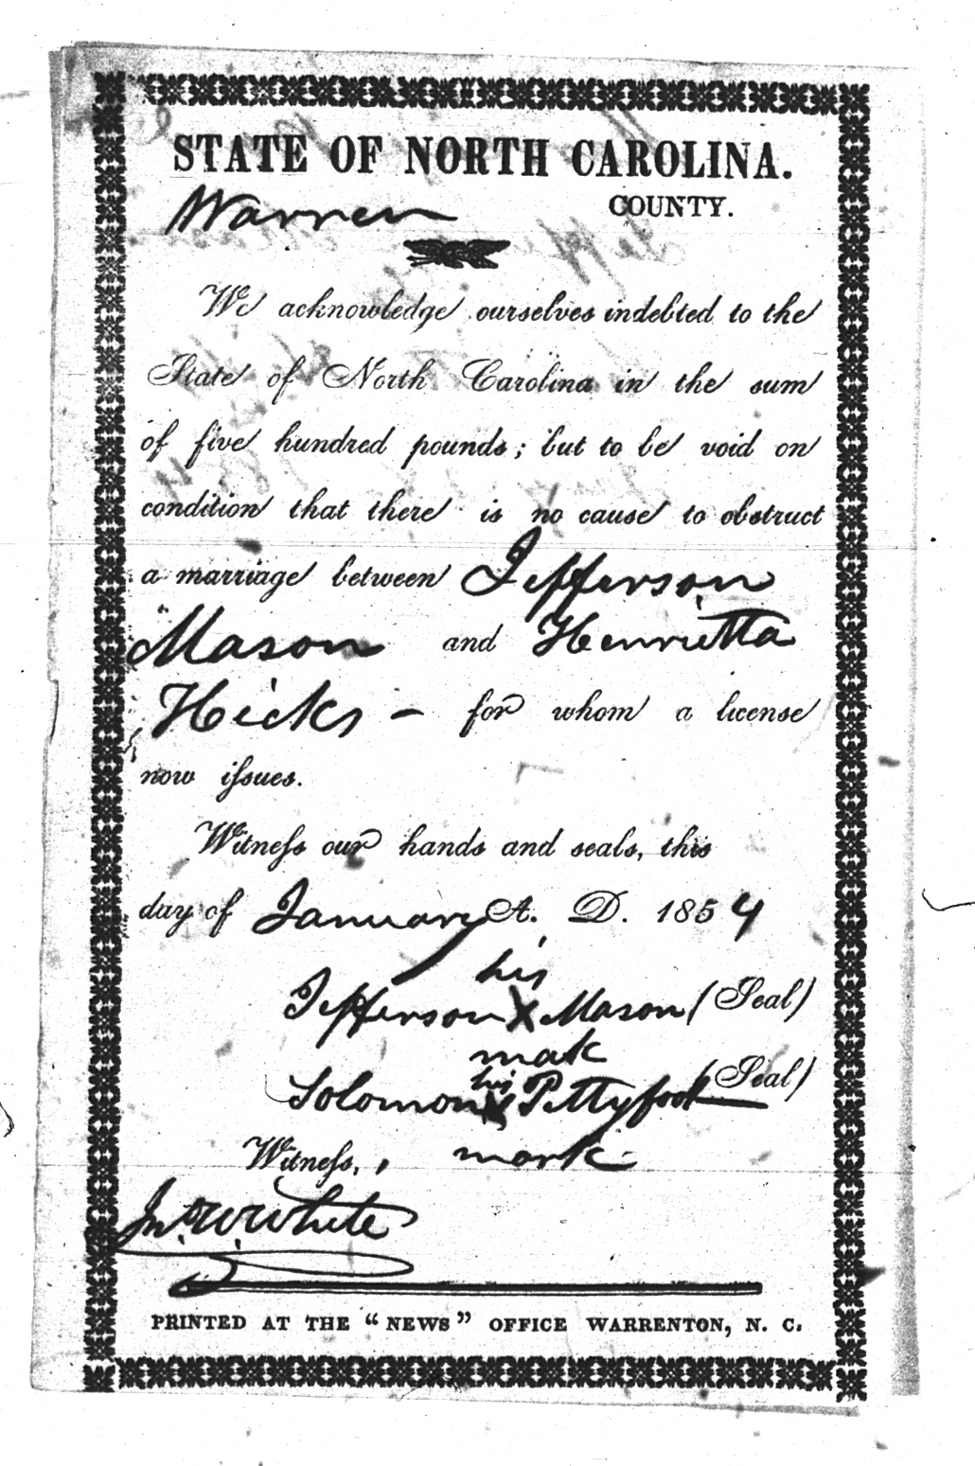 STATE OF NORTH CAROLINA.
Warren COUNTY.
We acknowledge ourselves indebted to the
State of North Carolina in the sum
of five hundred pounds; but to be void on
condition that there is no cause to obstruct
a marriage between Jefferson
Mason and Henrietta
Hicks – for whom a license
now issues.
Witness our hands and seals, this
day of January A. D. 1854
his
Jefferson X Mason (Seal)
mak
his
Solomon X Pettyfoot (Seal)
Witness, mark
Jno. W. White
PRINTED AT THE "NEWS" OFFICE WARRENTON, N. C.